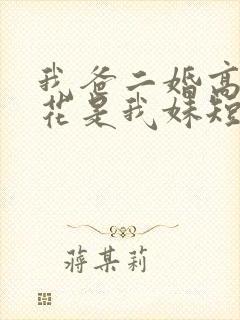 我爸二婚高
花是我妹短
蒋某莉